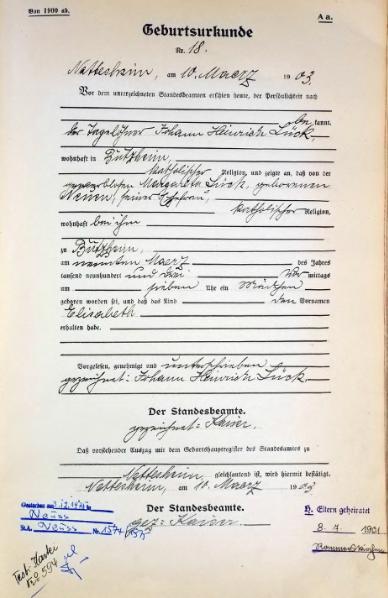 Von 1900 ab.
A a.
Geburtsurkunde
Nr. 18.
Nettesheim, am 10. Maerz 1903.
Vor dem unterzeichneten Standesbeamten erschien heute, der Persönlichkeit nach
be kannt,
der Tagelöhner Johann Heinrich Lück,
wohnhaft in Bützheim,
katholischer Religion, und zeigte an, daß von der
Margaretha Lück, geborenen
seiner Ehefrau,
katholischer Religion,
wohnhaft bei ihm
zu Bützheim,
am neunten Maerz des Jahres
tausend neunhundert und drei Vor mittags
um sieben Uhr ein Mädchen
geboren worden ist, und daß das Kind den Vornamen
Elisabeth
erhalten habe.
Vorgelesen, genehmigt und unterschrieben
gezeichnet: Johann Heinrich Lück.
Der Standesbeamte.
gezeichnet: Kaiser.
Daß vorstehender Auszug mit dem Geburtshauptregister des Standesamts zu
Nettesheim gleichlautend ist, wird hiermit bestätigt.
Nettesheim, am 10. Maerz 1903
Der Standesbeamte.
gez: Kaiser
Neuss
St.A. Neuss Nr.
Eltern geheiratet
8. 7. 1901